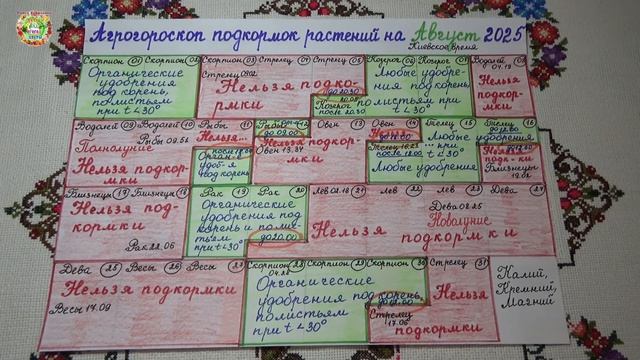 Агрогороскоп подкормок растений на Август 2025
Киевское время
Скорпион 01 Скорпион 02 Скорпион 03 Стрелец 04 Стрелец 05 Козерог 06 Козерог 07 Водолей 08
Стрелец 09.02
04.19
Органические
удобрения
под корень,
по листьям
при t < 30°
Нельзя подко-
рмки
до 20.30
Козерог 20.06
после 20.30
Любые удобре-
ния под корень,
по листьям при
t < 30°
Нельзя
подкор-
мки
Водолей 09 Водолей 10 Рыбы 11 Рыбы 12 Овен 13 Овен 14 Телец 15 Телец 16
Рыбы 09.52
Полнолуние
Нельзя подкормки
Нельзя...
Орган.
удоб-я
под корень
до 09.00
Нельзя подкор-
мки
Овен 13.34
Телец 16.23
Любые
удобрения
при
t < 30°
Любые удобрения
до 17.30
Нельзя
под-ки
Близнецы
Близнец 17 Близнец 18 Рак 19 Рак 20 Лев 02.18 21 Лев 22 Лев 23 Дева 24
Нельзя под-
кормки
Рак 22.06
Органические
удобрения под
корень и по лис-
тьям
при t < 30°
до 20.00
Дева 08.25
Новолуние
Нельзя подкормки
Дева 25 Весы 26 Весы 27 Скорпион 28 Скорпион 29 Скорпион 30 Стрелец 31
04.28
Нельзя подкормки
Весы 17.09
Органические
удобрения под корень,
по листьям
при t < 30°
Стрелец
17.05
Нельзя
подкормки
Калий,
Кремний,
Магний